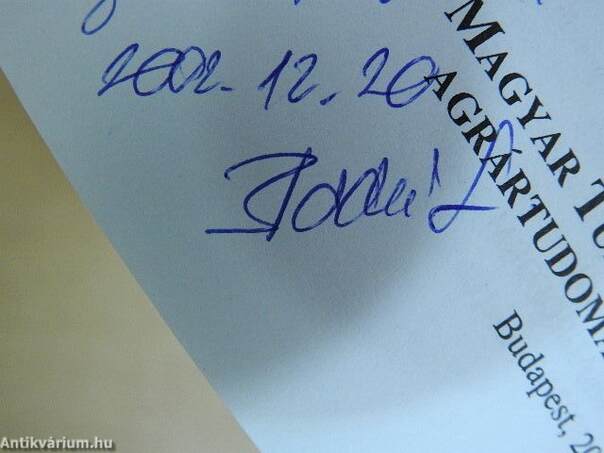 2002. 12. 20
MAGYAR TU
AGRÁRTUDOMÁ
Budapest, 20
Antikvárium.hu